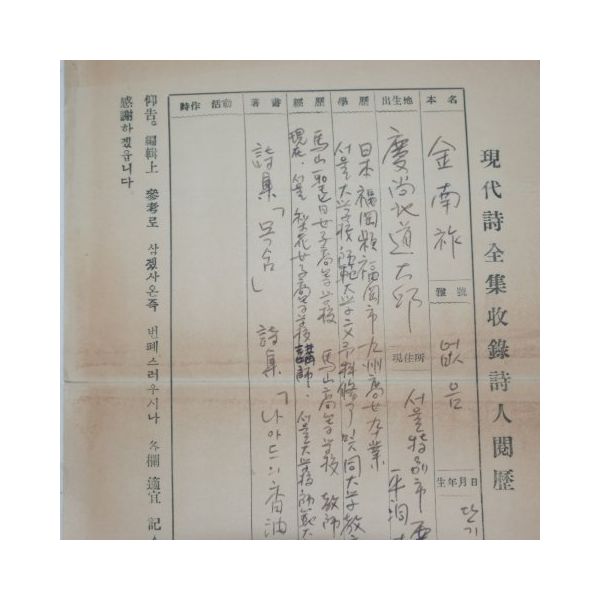 現代詩全集收錄詩人閱歷
本名
金南祚
雅號
없음
生年月日
단기
出生地
慶尙北道大邱
現住所
서울特別市
平洞
學歷
日本福岡縣福岡市九州高女卒業
서울大学校師範大学文予科修了 및 同大学教
經歷
馬山聖旨女子高等学校 馬山高等学校 教師
現在, 서울 梨花女子高等学校講師, 서울大学校師範大
著書
詩集「목숨」 詩集「나아드의香油
詩作活動
仰告, 編輯上 參考로 삼겠사온즉 번폐스러우시나 各欄 適宜 記
感謝하겠읍니다